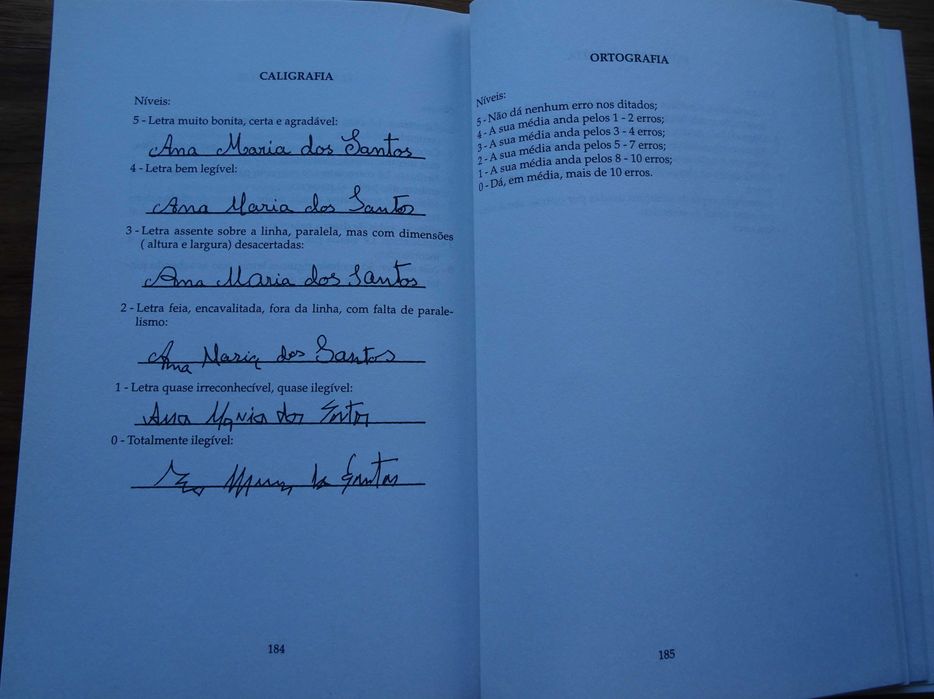 CALIGRAFIA
Níveis:
5 - Letra muito bonita, certa e agradável:
Ana Maria dos Santos
4 - Letra bem legível:
Ana Maria dos Santos
3 - Letra assente sobre a linha, paralela, mas com dimensões
( altura e largura) desacertadas:
Ana Maria dos Santos
2 - Letra feia, encavalitada, fora da linha, com falta de parale-
lismo:
Ana Maria dos Santos
1 - Letra quase irreconhecível, quase ilegível:
Ana Maria dos
0 - Totalmente ilegível:
184
ORTOGRAFIA
Níveis:
5 - Não dá nenhum erro nos ditados;
4 - A sua média anda pelos 1 - 2 erros;
3 - A sua média anda pelos 3 - 4 erros;
2 - A sua média anda pelos 5 - 7 erros;
1 - A sua média anda pelos 8 - 10 erros;
0 - Dá, em média, mais de 10 erros.
185